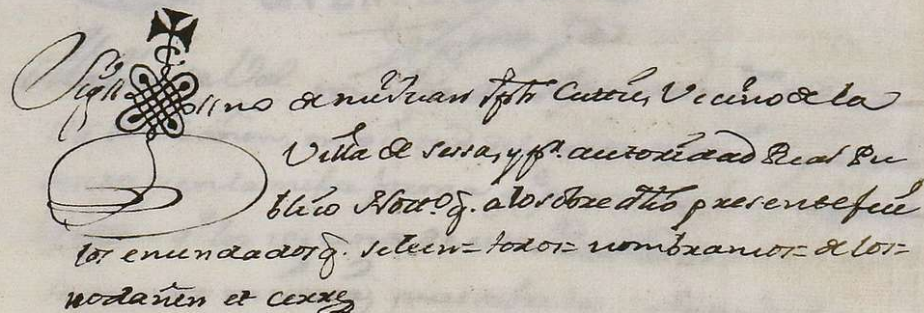 Sig no de mi Juan Jph Castie, Vecino de la
Villa de sesa, y pr. autoridad Real Pu
blico Nott.o q. a lo sobre dho presente fui
los enmendados q. se leen = todos = nombramos = de los =
no dañen et cerre